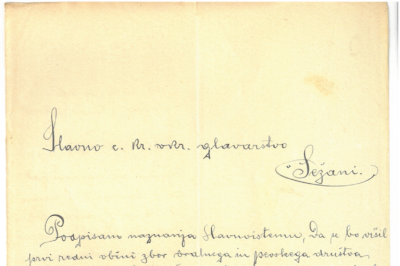 Slavno c. kr. okr. glavarstvo
Sežani.
Podpisani naznanja Slavnoistemu, Da se bo vršil
prvi redni občni zbor bralnega in pevskega društva